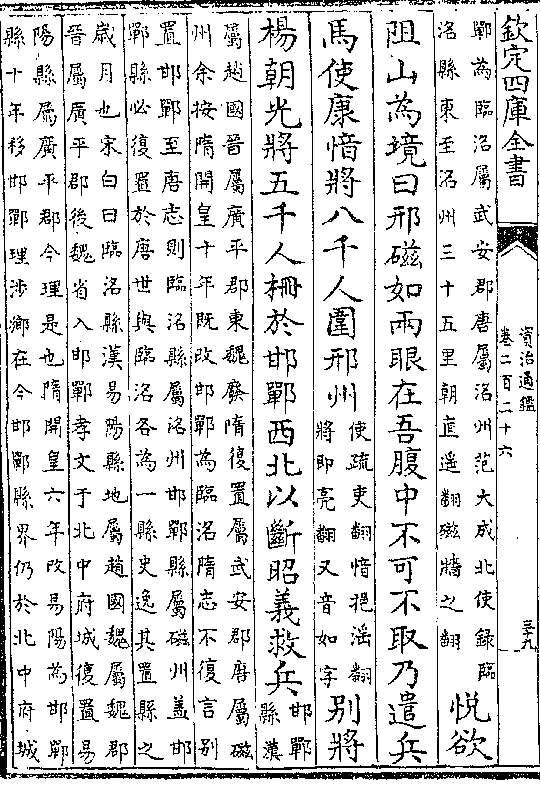 欽定四庫全書
資治通鑑
卷二百二十六
三十九
鄲為臨洺屬武安郡唐屬洺州范大成北使録臨
洺縣東至洺州三十五里朝直遥翻磁牆之翻
悦欲
阻山為境曰邢磁如兩眼在吾腹中不可不取乃遣兵
馬使康愔將八千人圍邢州
使疏吏翻愔挹滛翻
將即亮翻又音如字
別將
楊朝光將五千人柵於邯鄲西北以斷昭義救兵
邯鄲
縣漢
屬趙國晉屬廣平郡東魏廢隋復置屬武安郡唐屬磁
州余按隋開皇十年既改邯鄲為臨洺隋志不復言别
置邯鄲至唐志則臨洺縣屬洺州邯鄲縣屬磁州盖邯
鄲縣必復置於唐世與臨洺各為一縣史逸其置縣之
歲月也宋白曰臨洺縣漢易陽縣地屬趙國魏屬魏郡
晉屬廣平郡後魏省入邯鄲孝文于北中府城復置易
陽縣屬廣平郡今理是也隋開皇六年改易陽為邯鄲
縣十年移邯鄲理涉鄉在今邯鄲縣界仍於北中府城